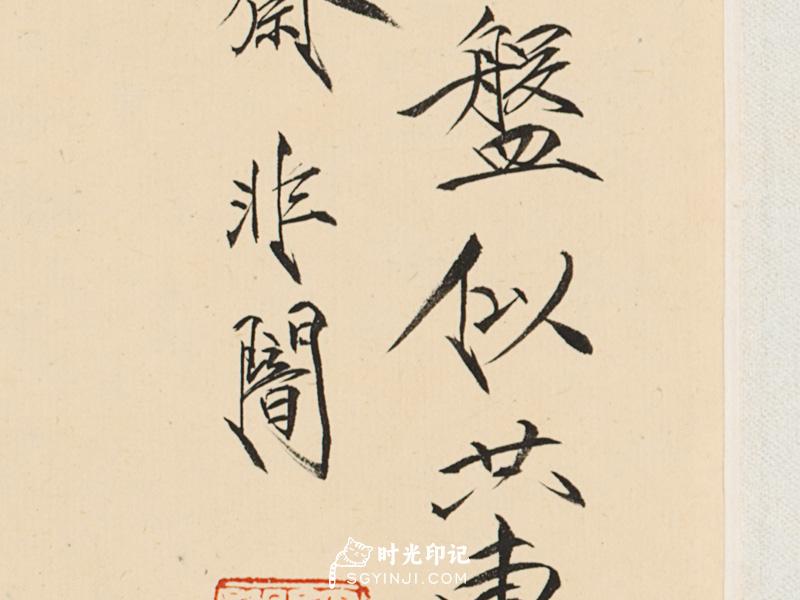 盤似共東
齋非闇
时光印记
SGYINJI.COM